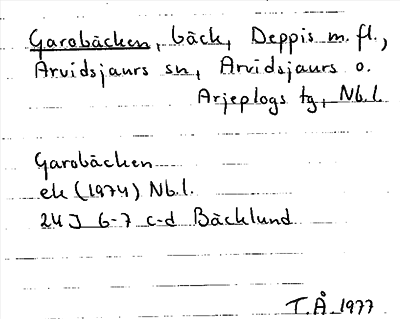 Garobäcken, bäck, Deppis m. fl.,
Arvidsjaurs sn, Arvidsjaurs o.
Arjeplogs tg, Nb.l.
Garobäcken
ek (1974) Nb.l.
24J 6-7 c-d Bäcklund
T.Å. 1977